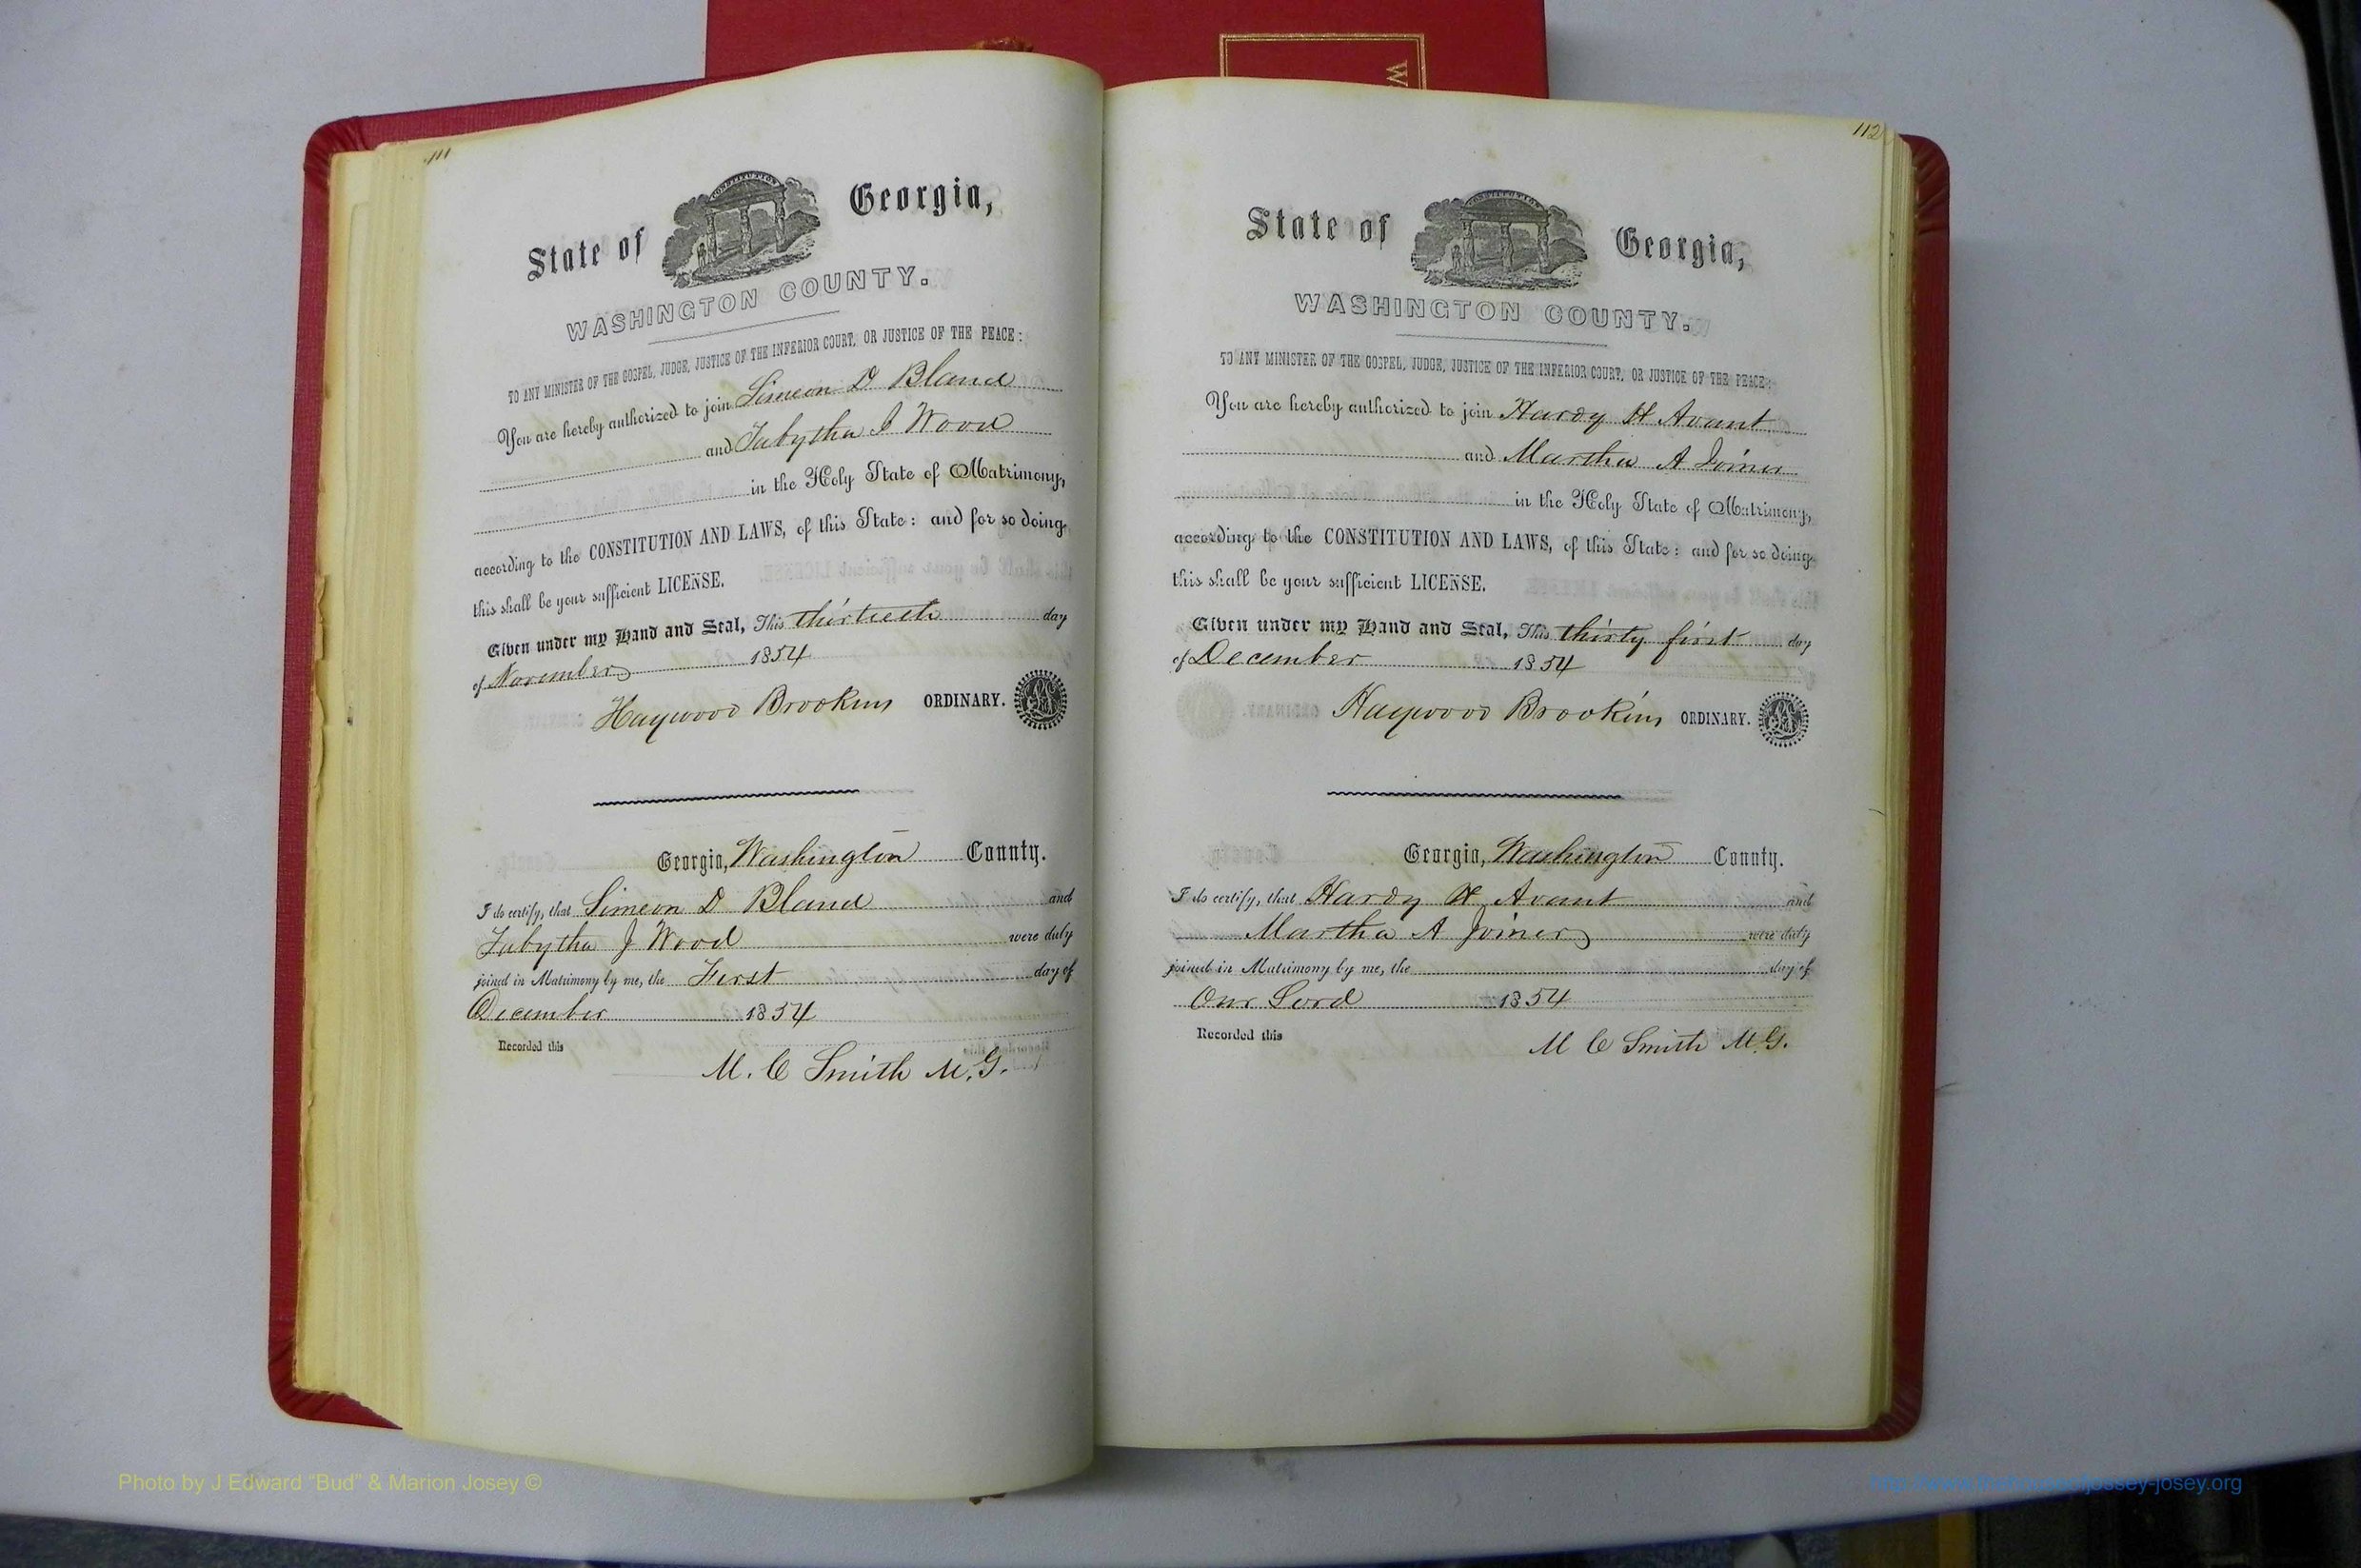 111
CONSTITUTION
State of Georgia,
WASHINGTON COUNTY.
TO ANY MINISTER OF THE GOSPEL, JUDGE, JUSTICE OF THE INFERIOR COURT, OR JUSTICE OF THE PEACE:
You are hereby authorized to join Simeon D Bland
and Tabytha J Wood
in the Holy State of Matrimony,
according to the CONSTITUTION AND LAWS, of this State: and for so doing
this shall be your sufficient LICENSE.
Given under my Hand and Seal, This thirtieth day
of November 1854
Haywood Brookins ORDINARY.
Georgia, Washington County.
I do certify, that Simeon D Bland and
Tabytha J Wood were duly
joined in Matrimony by me, the First day of
December 1854
Recorded this
M. C Smith M.G.
112
CONSTITUTION
State of Georgia,
WASHINGTON COUNTY.
TO ANY MINISTER OF THE GOSPEL, JUDGE, JUSTICE OF THE INFERIOR COURT, OR JUSTICE OF THE PEACE:
You are hereby authorized to join Hardy H Avant
and Martha A Joiner
in the Holy State of Matrimony,
according to the CONSTITUTION AND LAWS, of this State: and for so doing
this shall be your sufficient LICENSE.
Given under my Hand and Seal, This thirty first day
of December 1854
Haywood Brookins ORDINARY.
Georgia, Washington County.
I do certify, that Hardy H Avant and
Martha A Joiner were duly
joined in Matrimony by me, the day of
Our Lord 1854
Recorded this
M C Smith M.G.
Photo by J Edward “Bud” & Marion Josey ©